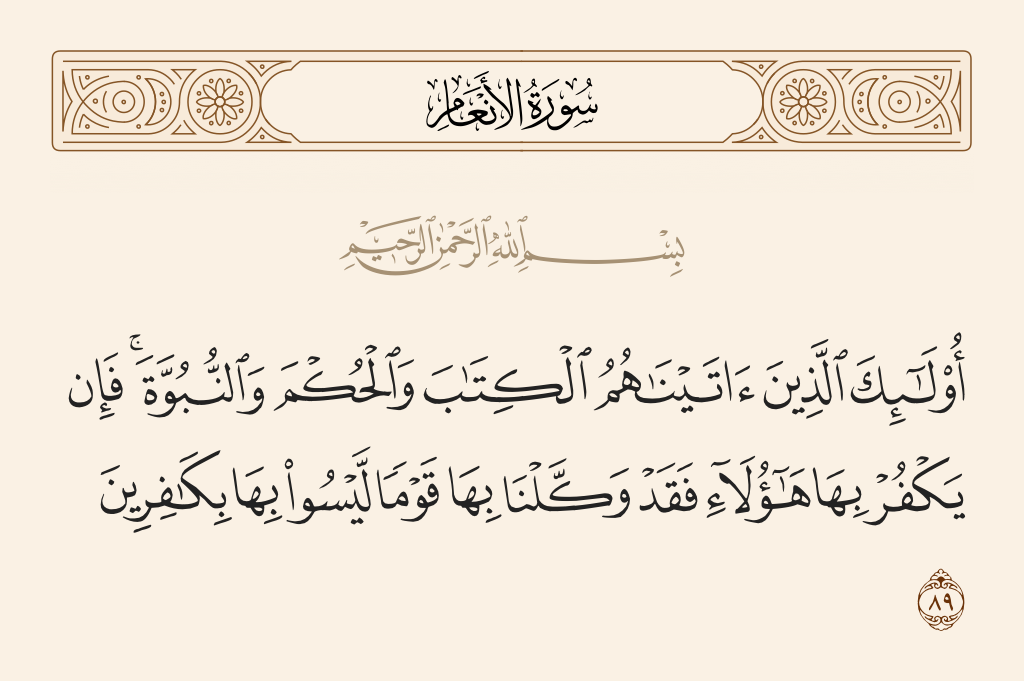 سُورَةُ الأَنْعَامِ
بِسْمِ ٱللَّهِ ٱلرَّحْمَٰنِ ٱلرَّحِيمِ
أُو۟لَـٰٓئِكَ ٱلَّذِينَ ءَاتَيْنَـٰهُمُ ٱلْكِتَـٰبَ وَٱلْحُكْمَ وَٱلنُّبُوَّةَ ۚ فَإِن
يَكْفُرْ بِهَا هَـٰٓؤُلَآءِ فَقَدْ وَكَّلْنَا بِهَا قَوْمًا لَّيْسُوا۟ بِهَا بِكَـٰفِرِينَ
٨٩